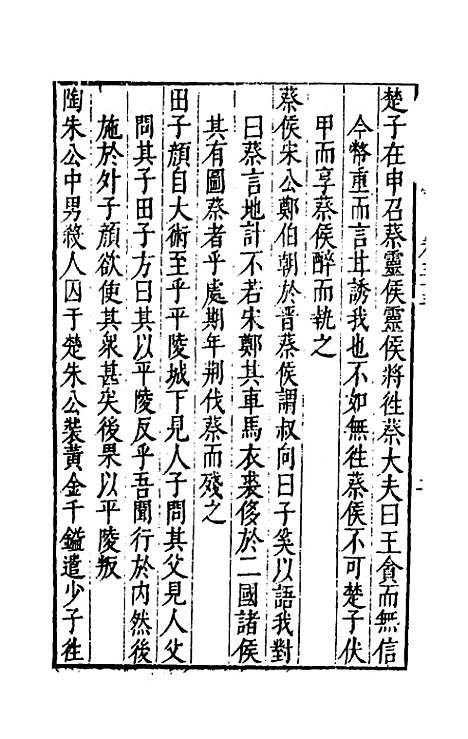 楚子在申召蔡靈侯靈侯將徃蔡大夫曰王貪而無信
今幣重而言甘誘我也不如無徃蔡侯不可楚子伏
甲而享蔡侯醉而執之
蔡侯宋公鄭伯朝於晋蔡侯謂叔向曰子奚以語我對
曰蔡言地計不若宋鄭其車馬衣裘侈於二國諸侯
其有圖蔡者乎處期年荆伐蔡而殘之
田子顔自大術至乎平陵城下見人子問其父見人父
問其子田子方曰其以平陵反乎吾聞行於内然後
施於外子顔欲使其衆甚矣後果以平陵叛
陶朱公中男殺人囚于楚朱公裝黄金千鎰遣少子徃